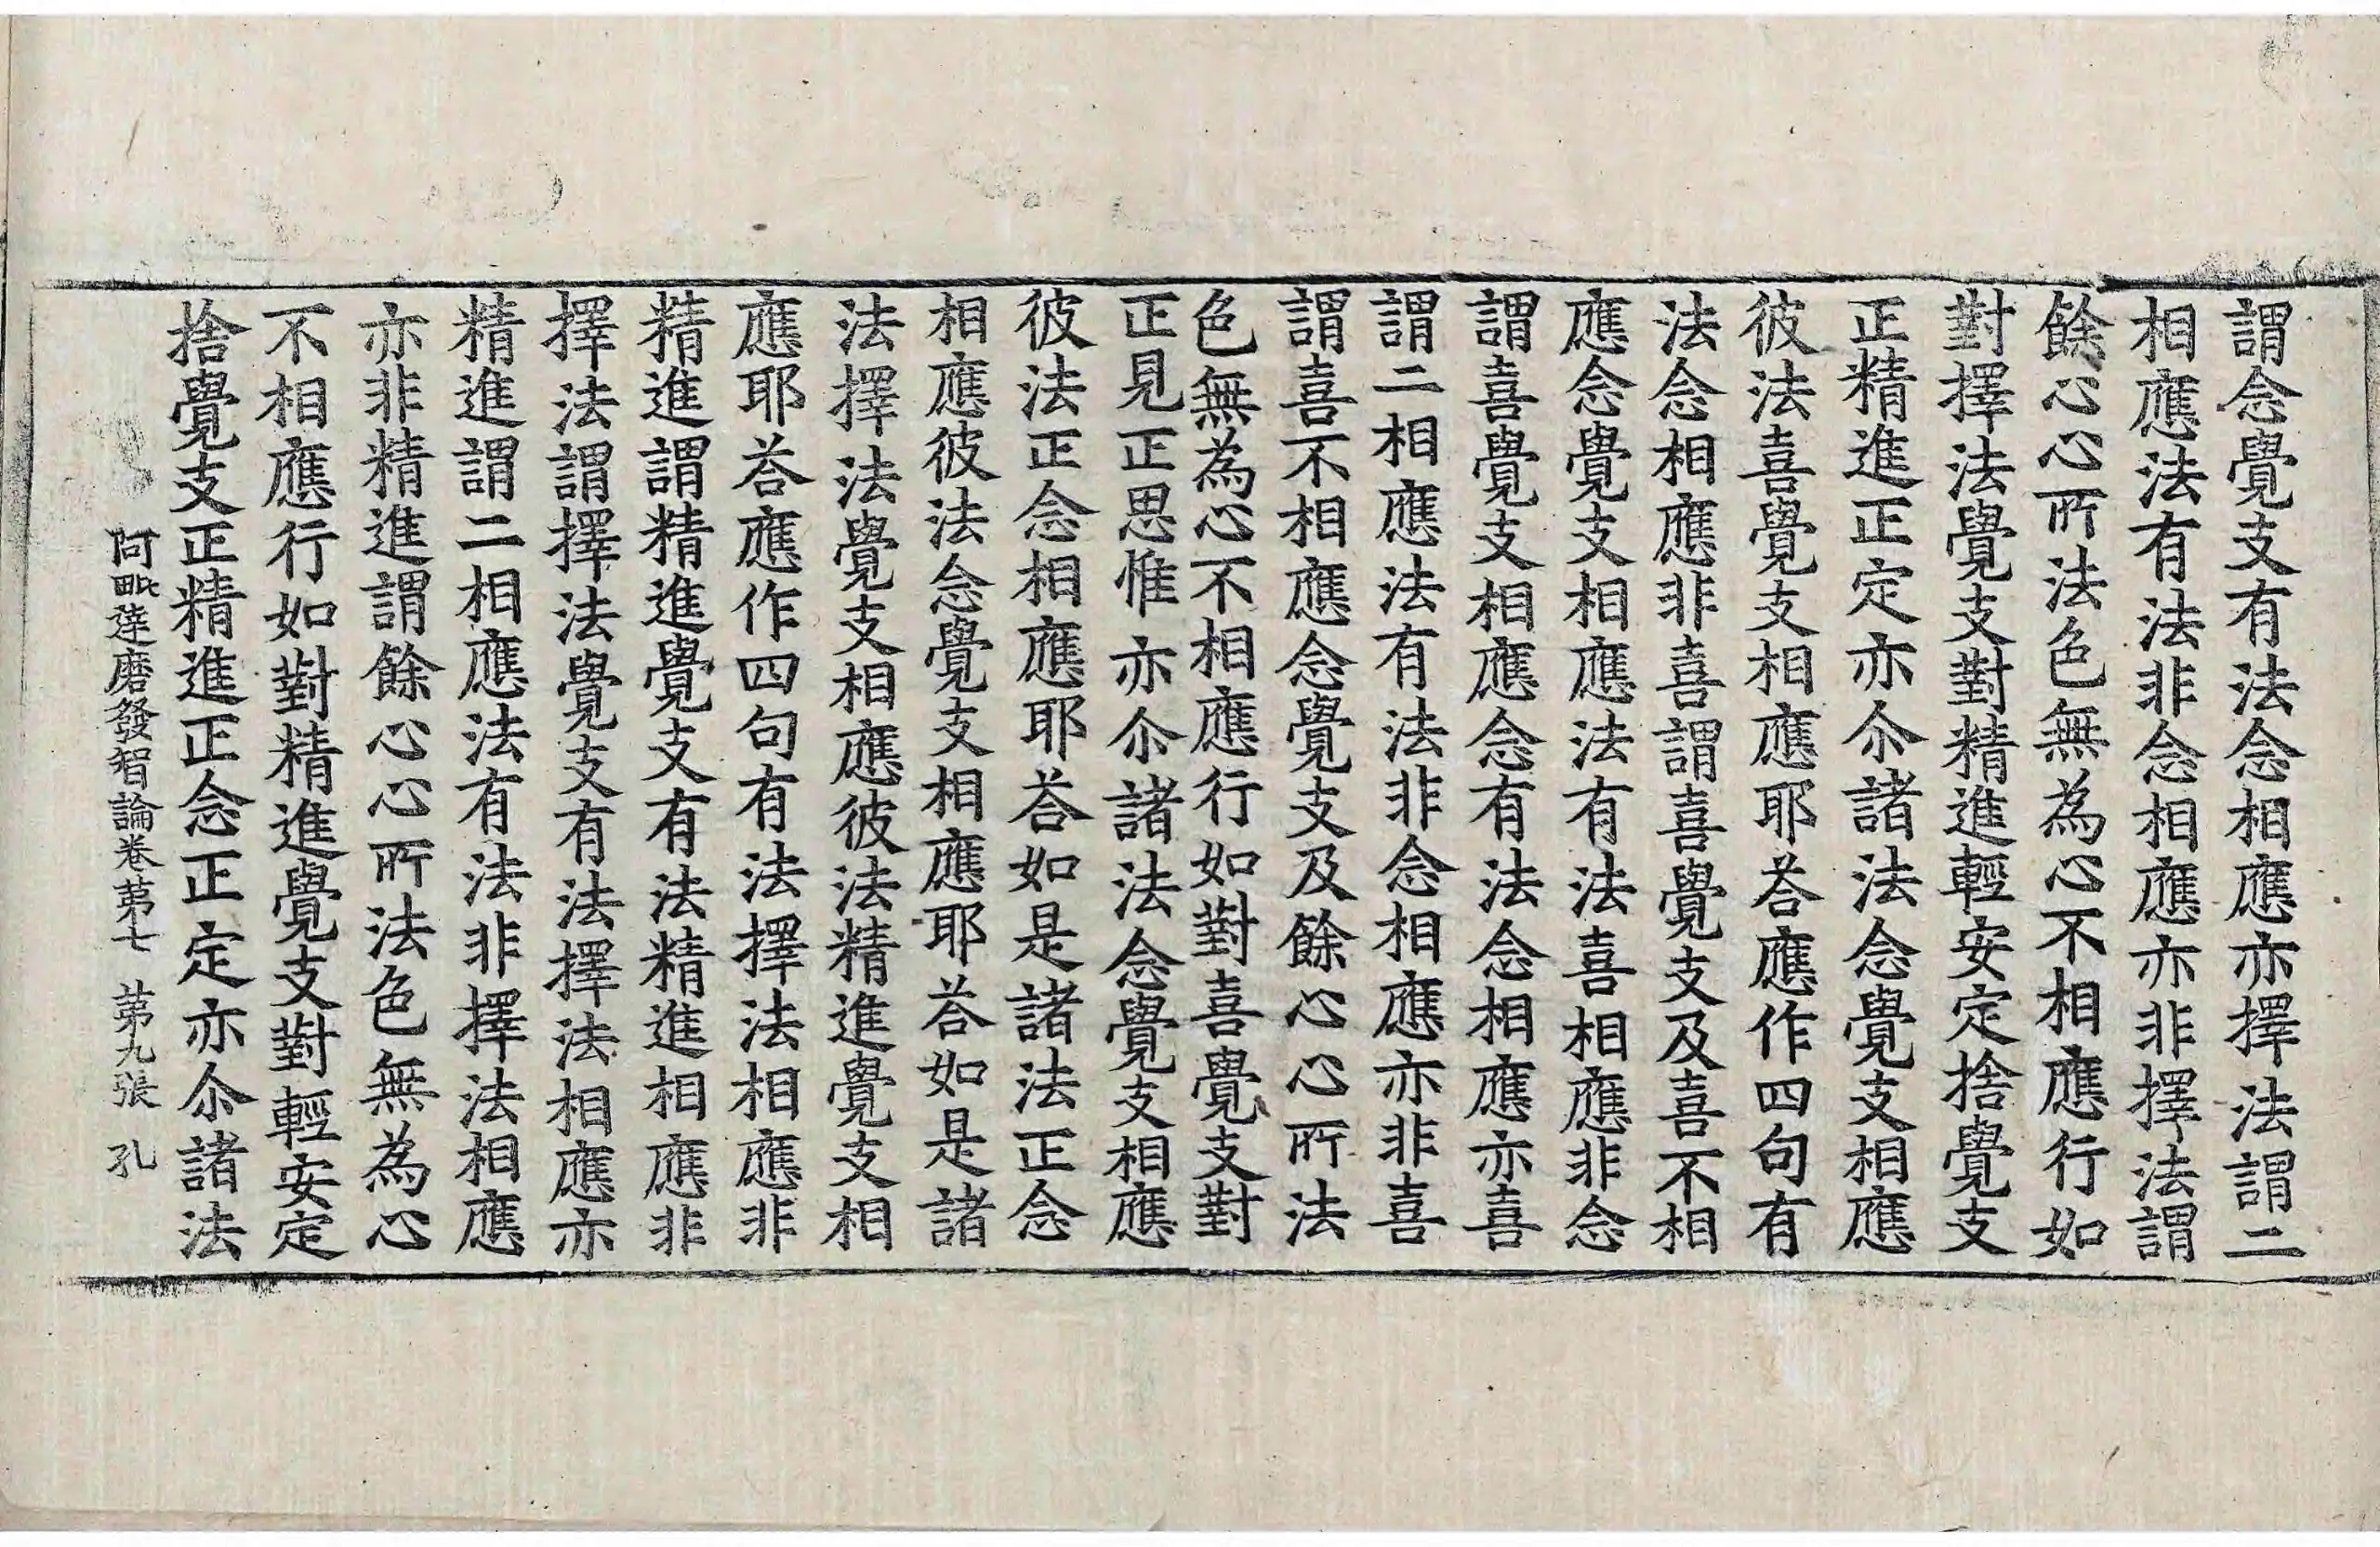 謂念覺支有法念相應亦擇法謂二
相應法有法非念相應亦非擇法謂
餘心心所法色無為心不相應行如
對擇法覺支對精進輕安定捨覺支
正精進正定亦尒諸法念覺支相應
彼法喜覺支相應耶荅應作四句有
法念相應非喜謂喜覺支及喜不相
應念覺支相應法有法喜相應非念
謂喜覺支相應念有法念相應亦喜
謂二相應法有法非念相應亦非喜
謂喜不相應念覺支及餘心心所法
色無為心不相應行如對喜覺支對
正見正思惟亦尒諸法念覺支相應
彼法正念相應耶荅如是諸法正念
相應彼法念覺支相應耶荅如是諸
法擇法覺支相應彼法精進覺支相
應耶荅應作四句有法擇法相應非
精進謂精進覺支有法精進相應非
擇法謂擇法覺支有法擇法相應亦
精進謂二相應法有法非擇法相應
亦非精進謂餘心心所法色無為心
不相應行如對精進覺支對輕安定
捨覺支正精進正念正定亦尒諸法
阿毗達磨發智論卷苐七 苐九張 孔